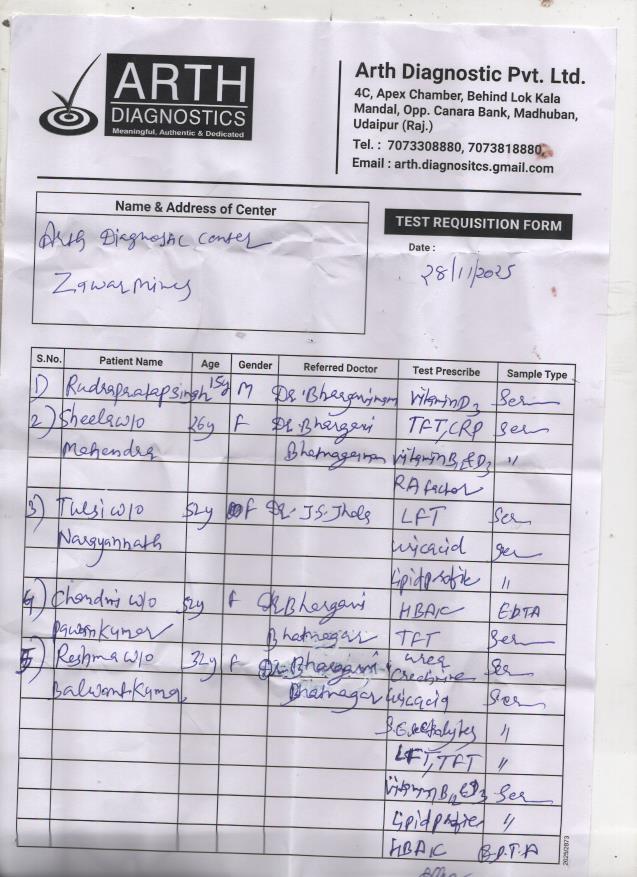 ARTH
DIAGNOSTICS
Meaningful, Authentic & Dedicated
Arth Diagnostic Pvt. Ltd.
4C, Apex Chamber, Behind Lok Kala
Mandal, Opp. Canara Bank, Madhuban,
Udaipur (Raj.)
Tel. : 7073308880, 7073818880,
Email : arth.diagnositcs.gmail.com
Name & Address of Center
Arth Diagnostic Center
Zawar Mines
TEST REQUISITION FORM
Date :
28/11/2025
S.No. Patient Name Age Gender Referred Doctor Test Prescribe Sample Type
1) Rudrapratap singh 15y M Dr. vitamin D3 Ser
2) Sheela w/o 26y F Dr. Bhargavi TFT, CRP Ser
Mahendra vitamin B12 & D3 "
RA factor
3) Tulsi w/o 52y F Dr. J.S. Jhala LFT Ser
Narayannath uric acid Ser
Lipid profile "
4) Chandri w/o 52y F Dr. Bhargavi HBA1C EDTA
Pawan Kumar Bhatnagar TFT Ser
5) Reshma w/o 32y F Dr. Bhargavi urea Creatinine Ser
Balwant Kumar Bhatnagar uric acid Ser
S. Electrolytes "
LFT, TFT "
vitamin B12 & D3 Ser
Lipid profile "
HBA1C E.D.T.A
2025/2873